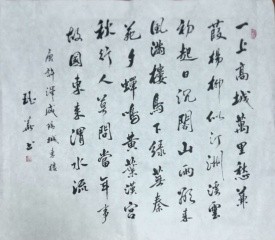 一上高城萬里愁蒹
葭楊柳似汀洲溪雲
初起日沉閣山雨欲來
風滿樓鳥下绿蕪秦
苑夕蟬鳴黄葉漢宮
秋行人莫問當年事
故國東來渭水流
唐許渾咸陽城東樓
書